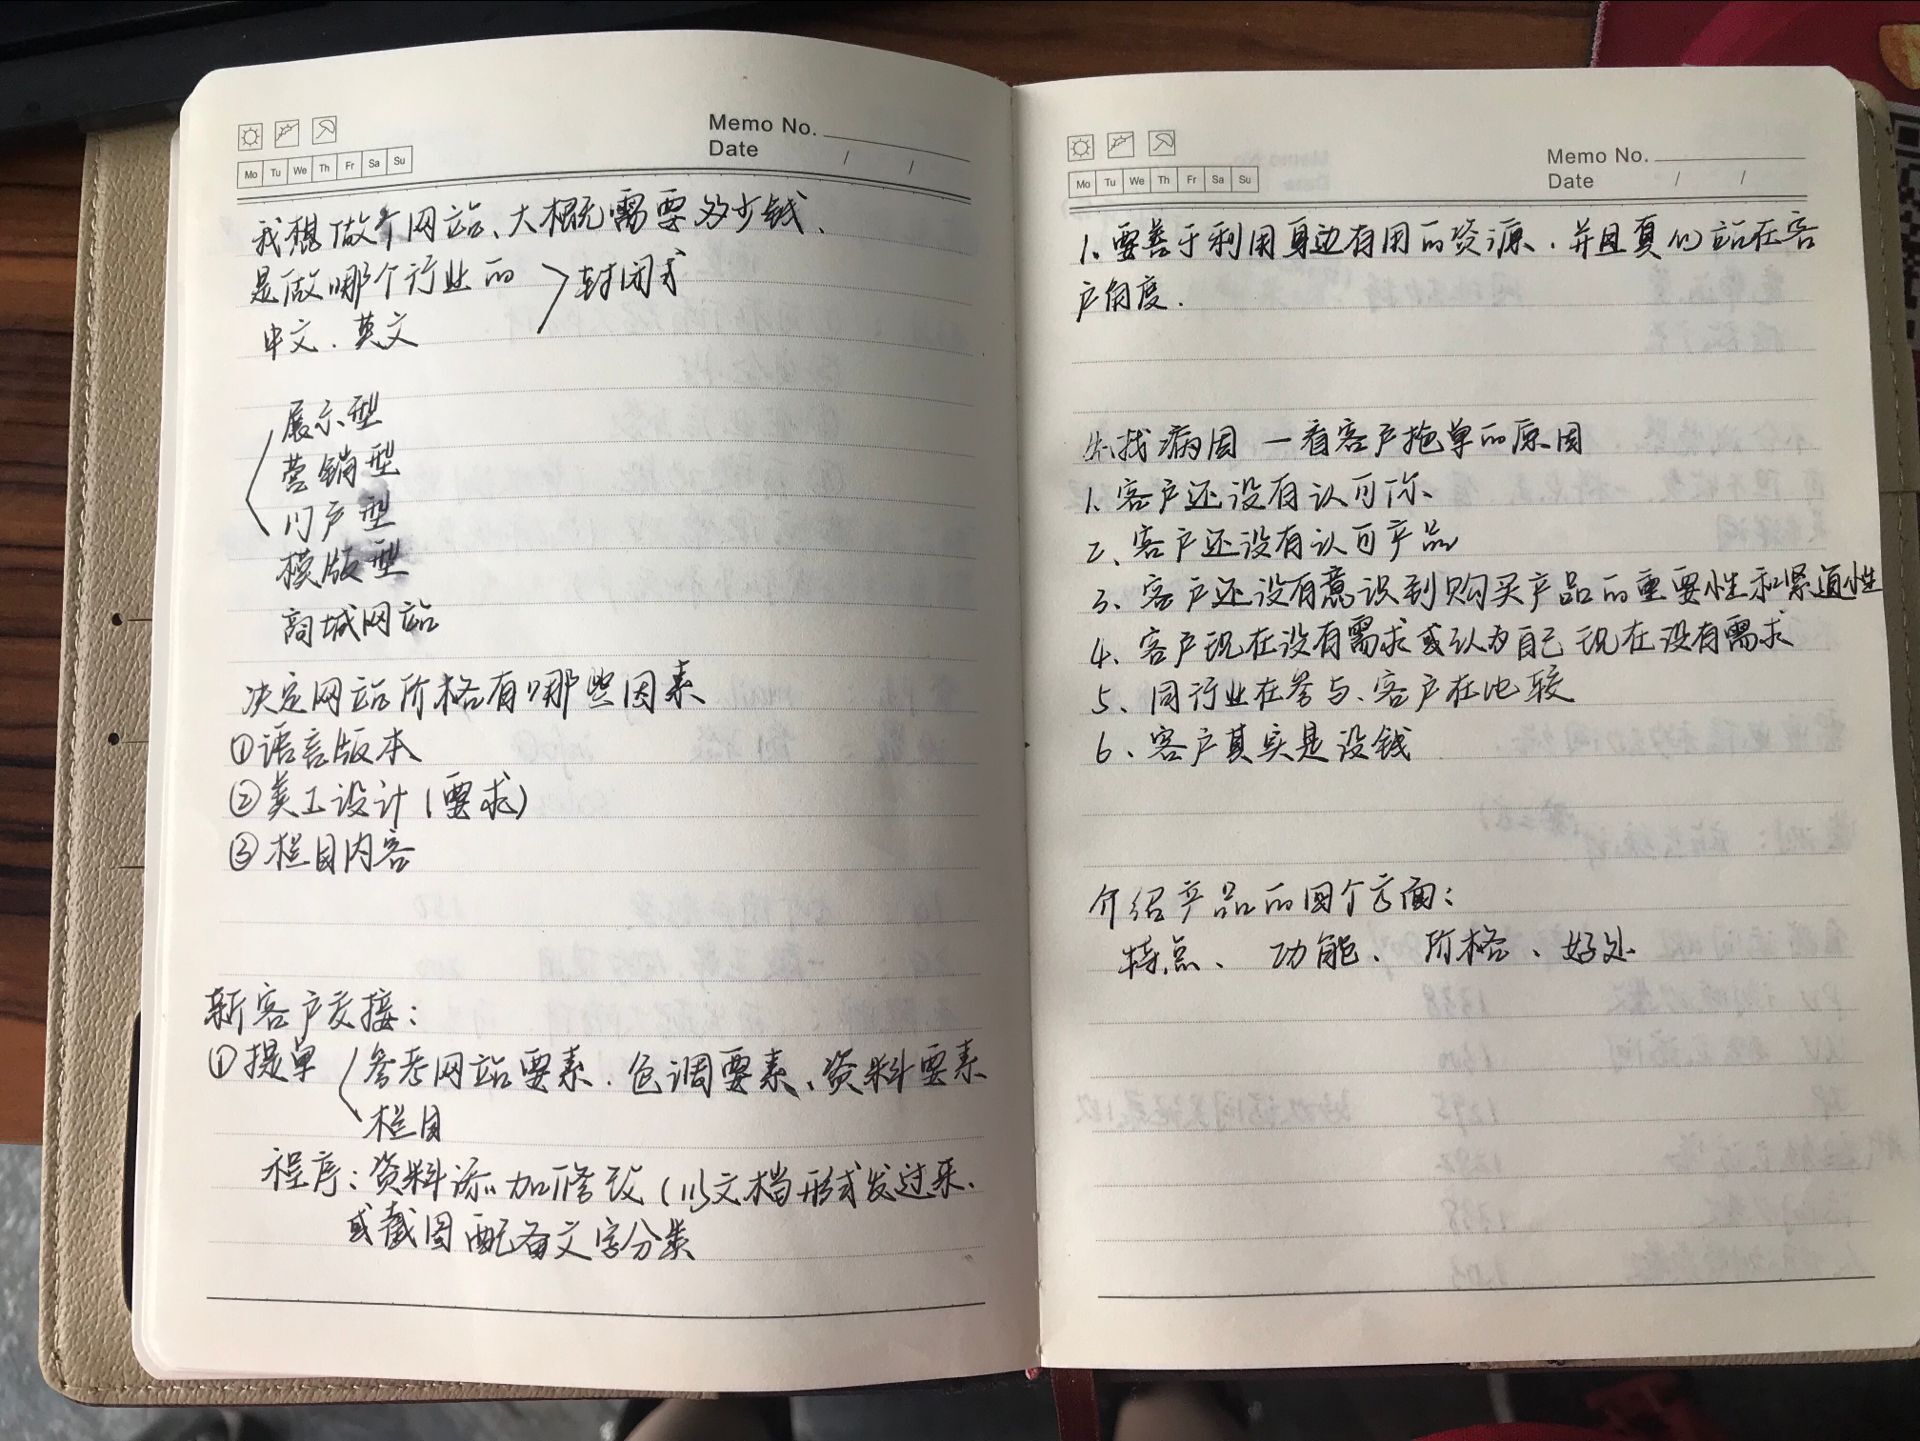 Memo No.
Date / /
Mo Tu We Th Fr Sa Su
我想做个网站、大概需要多少钱、
是做哪个行业的 > 封闭式
中文、英文
展示型
营销型
门户型
模版型
商城网站
决定网站价格有哪些因素
①语言版本
②美工设计(要求)
③栏目内容
新客户交接：
①提单 参考网站要素、色调要素、资料要素
栏目
程序：资料添加修改(以文档形式发过来、
或截图配备文字分类
Memo No.
Date / /
Mo Tu We Th Fr Sa Su
1、要善于利用身边有用的资源、并且真心站在客
户角度.
找病因 一看客户拖单的原因
1、客户还没有认可你
2、客户还没有认可产品
3、客户还没有意识到购买产品的重要性和紧迫性
4、客户现在没有需求或认为自己现在没有需求
5、同行业在参与、客户在比较
6、客户其实是没钱
介绍产品的四个方面：
特点、 功能、 价格、好处